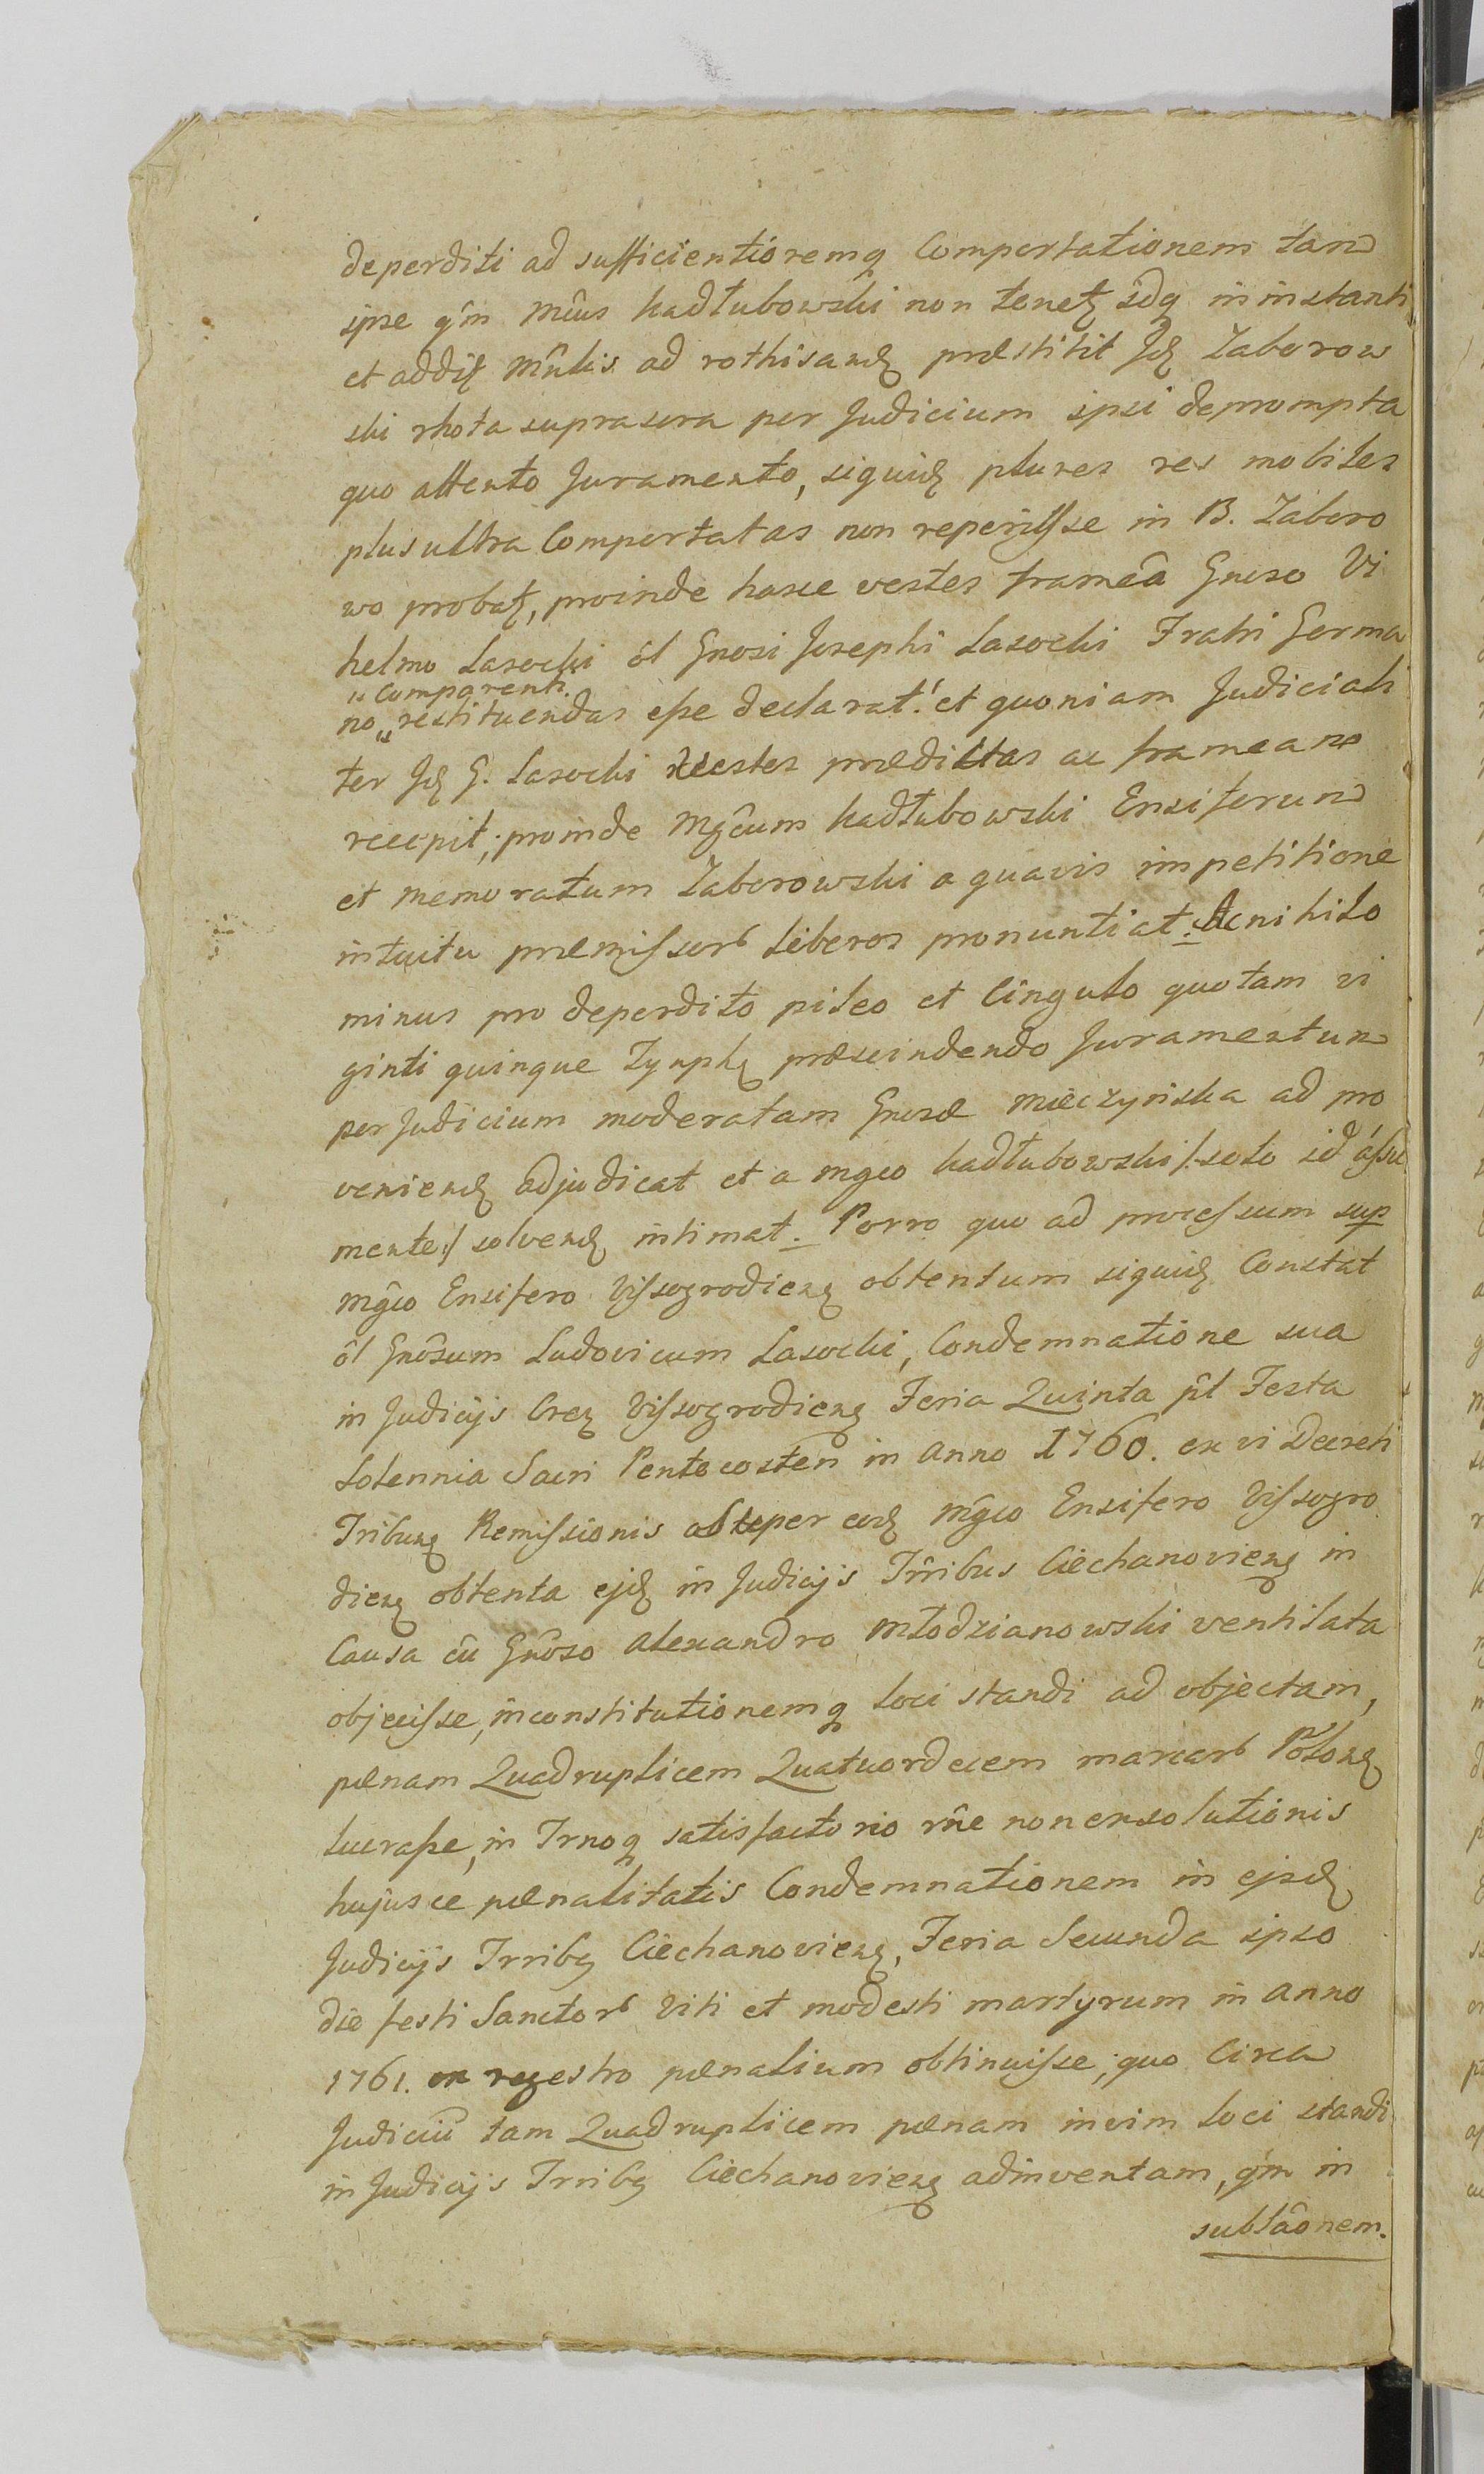 deperditi ad sufficientioremq Comportationem tam
ipse qm̂ Mĉus Kadłubowski non tenetʒ sdq in instanti
et addit Mnlis ad rothisandʒ præstitit Jdʒ Zaborow
ski rhota suprascra per Judicium ipsi deprompta
quo attento Juramento, siquidʒ plures res mobiles
plus ultra Comportatas non reperijsse in B. Zaboro
wo probatʒ, proinde hasce vestes frameâ Gnoso Vi
helmo Lasocki ôl Gnosi Josephi Lasocki Fratri Germa
„Comparenti.
no „ restituendas esse declarat: et quoniam Judiciali
ter Jdʒ G. Lasocki vestes prædictas ac frameam
recepit, proinde Mgĉum Kadłubowski Ensiferum
et memoratum Zaborowski a quavis impetitione
intuitu præmissorb liberos pronuntiat. Ac nihilo
minus pro deperdito pileo et Cingulo quotam vi
ginti quinque Tynphʒ præscindendo Juramentum
per Judicium moderatam Gnosæ Mieczyńska ad pro
veniendʒ adjudicat et a Mgco Kadłubowski /:solo id assu
mente:/ solvendʒ intimat. Porro quo ad processum sup
Mgĉo Ensifero Vissogrodienʒ obtentum siquidʒ Constat
ôl Gnôsum Ludovicum Lasocki, Condemnatione sua
in Judicijs Crenʒ Vissogrodienʒ Feria Quinta pt̂ Festa
Solennia Sacri Pentecosten in Anno 1760. ex vi Decreti
Tribunʒ Remissionis super eodʒ Mgĉo Ensifero Vissogro
dienʒ obtenta ejdʒ in Judicijs Trr̂ibus Ciechanovienʒ in
Causa cû Gnôso Alexandro Młodzianowski ventilata
objecisse, inconstitutionemq loci standi ad objectam,
pænam Quadruplicem Quatuordecem marcarb Polonʒ
lucrasse, in Trnoq satisfactorio rn̂e non exsolutionis
hujusce pænalitatis Condemnationem in ejsdʒ
Judicijs Trribʒ Ciechanovienʒ, Feria Secunda ipso
die festi Sanctorb Viti et modesti martyrum in Anno
1761. ex regestro pænalium obtinuisse, quo Circa
Judiciû tam Quadruplicem pænam in vim loci standi
in Judicijs Trribʒ Ciechanovienʒ adinventam, qm̂ in
sublaônem.